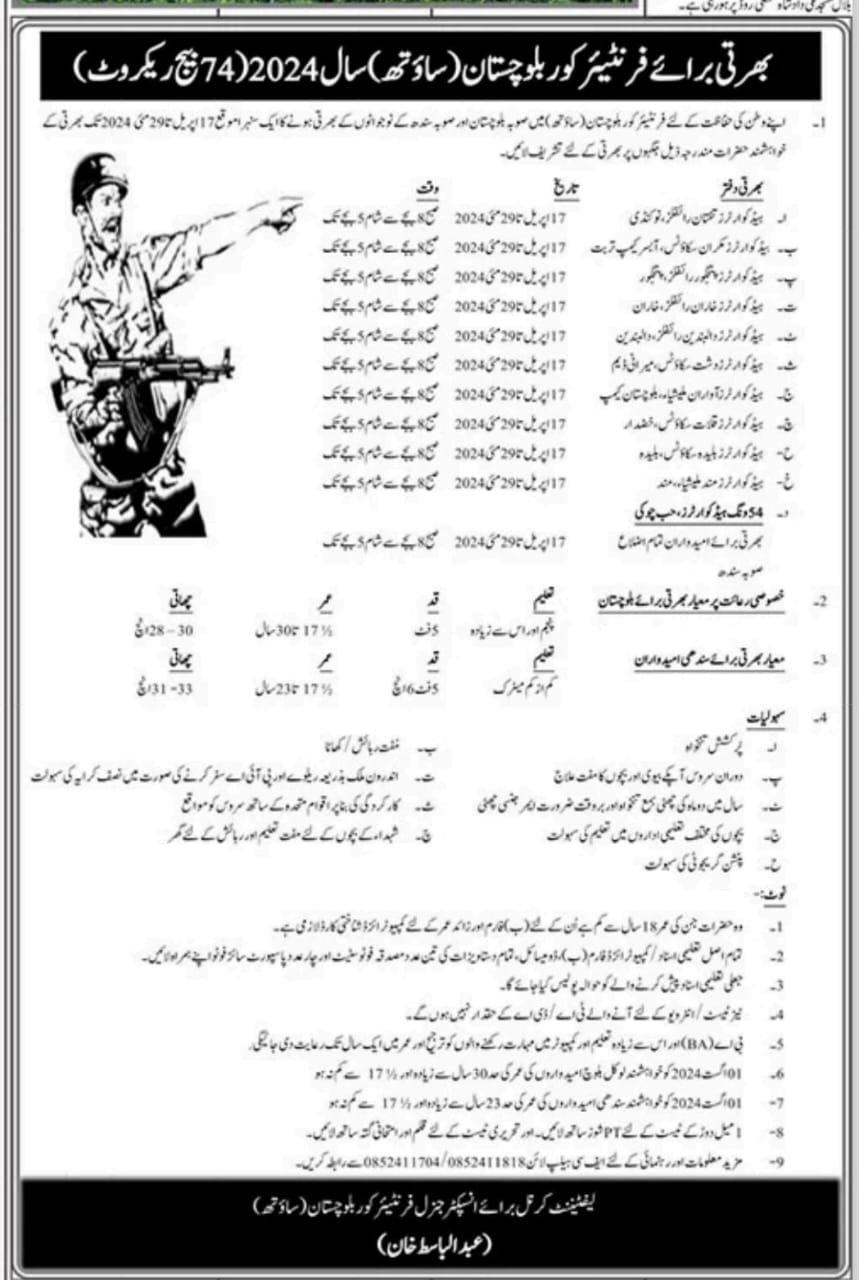 بھرتی برائے فرنٹیئر کور بلوچستان (ساؤتھ) سال 2024 (74 بیچ ریکروٹ)
1۔ اپنے وطن کی حفاظت کے لئے فرنٹیئر کور بلوچستان (ساؤتھ) میں صوبہ بلوچستان اور صوبہ سندھ کے نوجوانوں کے بھرتی ہونے کا ایک سنہرا موقع 17 اپریل تا 29 مئی 2024 تک بھرتی کے
خواہشمند حضرات مندرجہ ذیل جگہوں پر بھرتی کے لئے تشریف لائیں۔
بھرتی دفتر تاریخ وقت
ا۔ ہیڈ کوارٹرز تفتان رائفلز، نوکنڈی 17 اپریل تا 29 مئی 2024 صبح 8 بجے سے شام 5 بجے تک
ب۔ ہیڈ کوارٹرز مکران سکاؤٹس، آبسر کیمپ تربت 17 اپریل تا 29 مئی 2024 صبح 8 بجے سے شام 5 بجے تک
پ۔ ہیڈ کوارٹرز پنجگور رائفلز، پنجگور 17 اپریل تا 29 مئی 2024 صبح 8 بجے سے شام 5 بجے تک
ت۔ ہیڈ کوارٹرز خاران رائفلز، خاران 17 اپریل تا 29 مئی 2024 صبح 8 بجے سے شام 5 بجے تک
ٹ۔ ہیڈ کوارٹرز دالبندین رائفلز، دالبندین 17 اپریل تا 29 مئی 2024 صبح 8 بجے سے شام 5 بجے تک
ث۔ ہیڈ کوارٹرز دشت سکاؤٹس، میرانی ڈیم 17 اپریل تا 29 مئی 2024 صبح 8 بجے سے شام 5 بجے تک
ج۔ ہیڈ کوارٹرز آواران ملیشیاء، بلوچستان کیمپ 17 اپریل تا 29 مئی 2024 صبح 8 بجے سے شام 5 بجے تک
چ۔ ہیڈ کوارٹرز قلات سکاؤٹس، خضدار 17 اپریل تا 29 مئی 2024 صبح 8 بجے سے شام 5 بجے تک
ح- ہیڈ کوارٹرز بلیدہ سکاؤٹس، بلیدہ 17 اپریل تا 29 مئی 2024 صبح 8 بجے سے شام 5 بجے تک
خ- ہیڈ کوارٹرز مند ملیشیاء، مند 17 اپریل تا 29 مئی 2024 صبح 8 بجے سے شام 5 بجے تک
د۔ 54 ونگ ہیڈ کوارٹرز، حب چوکی
بھرتی برائے امیدواران تمام اضلاع 17 اپریل تا 29 مئی 2024 صبح 8 بجے سے شام 5 بجے تک
صوبہ سندھ
2۔ خصوصی رعائت پر معیار بھرتی برائے بلوچستان تعلیم قد عمر چھاتی
پنجم اور اس سے زیادہ 5 فٹ 17 ½ تا 30 سال 28 – 30 انچ
3۔ معیار بھرتی برائے سندھی امیدواران تعلیم قد عمر چھاتی
کم از کم میٹرک 5 فٹ 6 انچ 17 ½ تا 23 سال 31 – 33 انچ
4۔ سہولیات
ا۔ پُرکشش تنخواہ ب۔ مفت رہائش / کھانا
پ۔ دوران سروس آپکے بیوی اور بچوں کا مفت علاج ت۔ اندرون ملک بذریعہ ریلوے اور پی آئی اے سفر کرنے کی صورت میں نصف کرایہ کی سہولت
ٹ۔ سال میں دو ماہ کی چھٹی بمع تنخواہ اور بروقت ضرورت ایمرجنسی چھٹی ث۔ کارکردگی کی بنا پر اقوام متحدہ کے ساتھ سروس کو مواقع
ج۔ بچوں کی مختلف تعلیمی اداروں میں تعلیم کی سہولت چ۔ شہداء کے بچوں کے لئے مفت تعلیم اور رہائش کے لئے گھر
ح۔ پنشن گریجوٹی کی سہولت
نوٹ:-
1۔ وہ حضرات جن کی عمر 18 سال سے کم ہے اُن کے لئے (ب) فارم اور زائد عمر کے لئے کمپیوٹرائزڈ شناختی کارڈ لازمی ہے۔
2۔ تمام اصل تعلیمی اسناد / کمپیوٹرائزڈ فارم (ب)، ڈومیسائل، تمام دستاویزات کی تین عدد مصدقہ فوٹو سٹیٹ اور چار عدد پاسپورٹ سائز فوٹو اپنے ہمراہ لائیں۔
3۔ جعلی تعلیمی اسناد پیش کرنے والے کو حوالہ پولیس کیا جائے گا۔
4۔ نیز ٹیسٹ / انٹرویو کے لئے آنے والے ٹی اے / ڈی اے کے حقدار نہیں ہوں گے۔
5۔ بی اے (BA) اور اس سے زیادہ تعلیم اور کمپیوٹر میں مہارت رکھنے والوں کو ترجیح اور عمر میں ایک سال تک رعایت دی جائیگی.
6۔ 01 اگست 2024 کو خواہشمند لوکل بلوچ امیدواروں کی عمر کی حد 30 سال سے زیادہ اور 17 ½ سے کم نہ ہو
7- 01 اگست 2024 کو خواہشمند سندھی امیدواروں کی عمر کی حد 23 سال سے زیادہ اور 17 ½ سے کم نہ ہو
8- 1 میل دوڑ کے ٹیسٹ کے لئے PT شوز ساتھ لائیں۔ اور تحریری ٹیسٹ کے لئے قلم اور امتحانی گتہ ساتھ لائیں۔
9- مزید معلومات اور رہنمائی کے لئے ایف سی ہیلپ لائن 0852411818/0852411704 سے رابطہ کریں۔
لیفٹیننٹ کرنل برائے انسپکٹر جنرل فرنٹیئر کور بلوچستان (ساؤتھ)
(عبدالباسط خان)